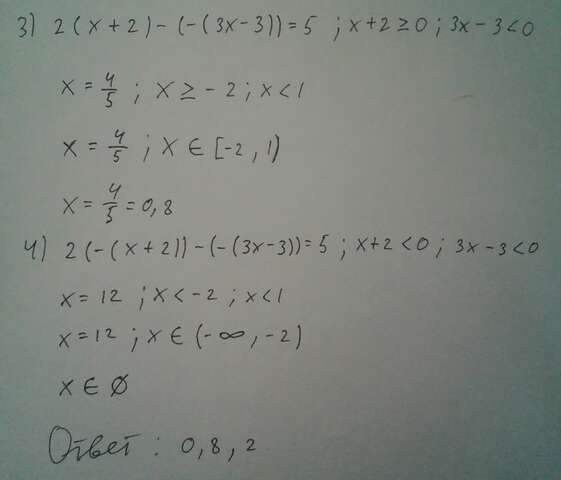 3) 2(x+2)-(-(3x-3))=5 ; x+2≥0 ; 3x-3<0
x = 4/5 ; x ≥ -2 ; x < 1
x = 4/5 ; x ∈ [-2, 1)
x = 4/5 = 0,8
4) 2(-(x+2))-(-(3x-3))=5 ; x+2<0 ; 3x-3<0
x = 12 ; x < -2 ; x < 1
x = 12 ; x ∈ (-∞, -2)
x ∈ ∅
Ответ : 0,8, 2